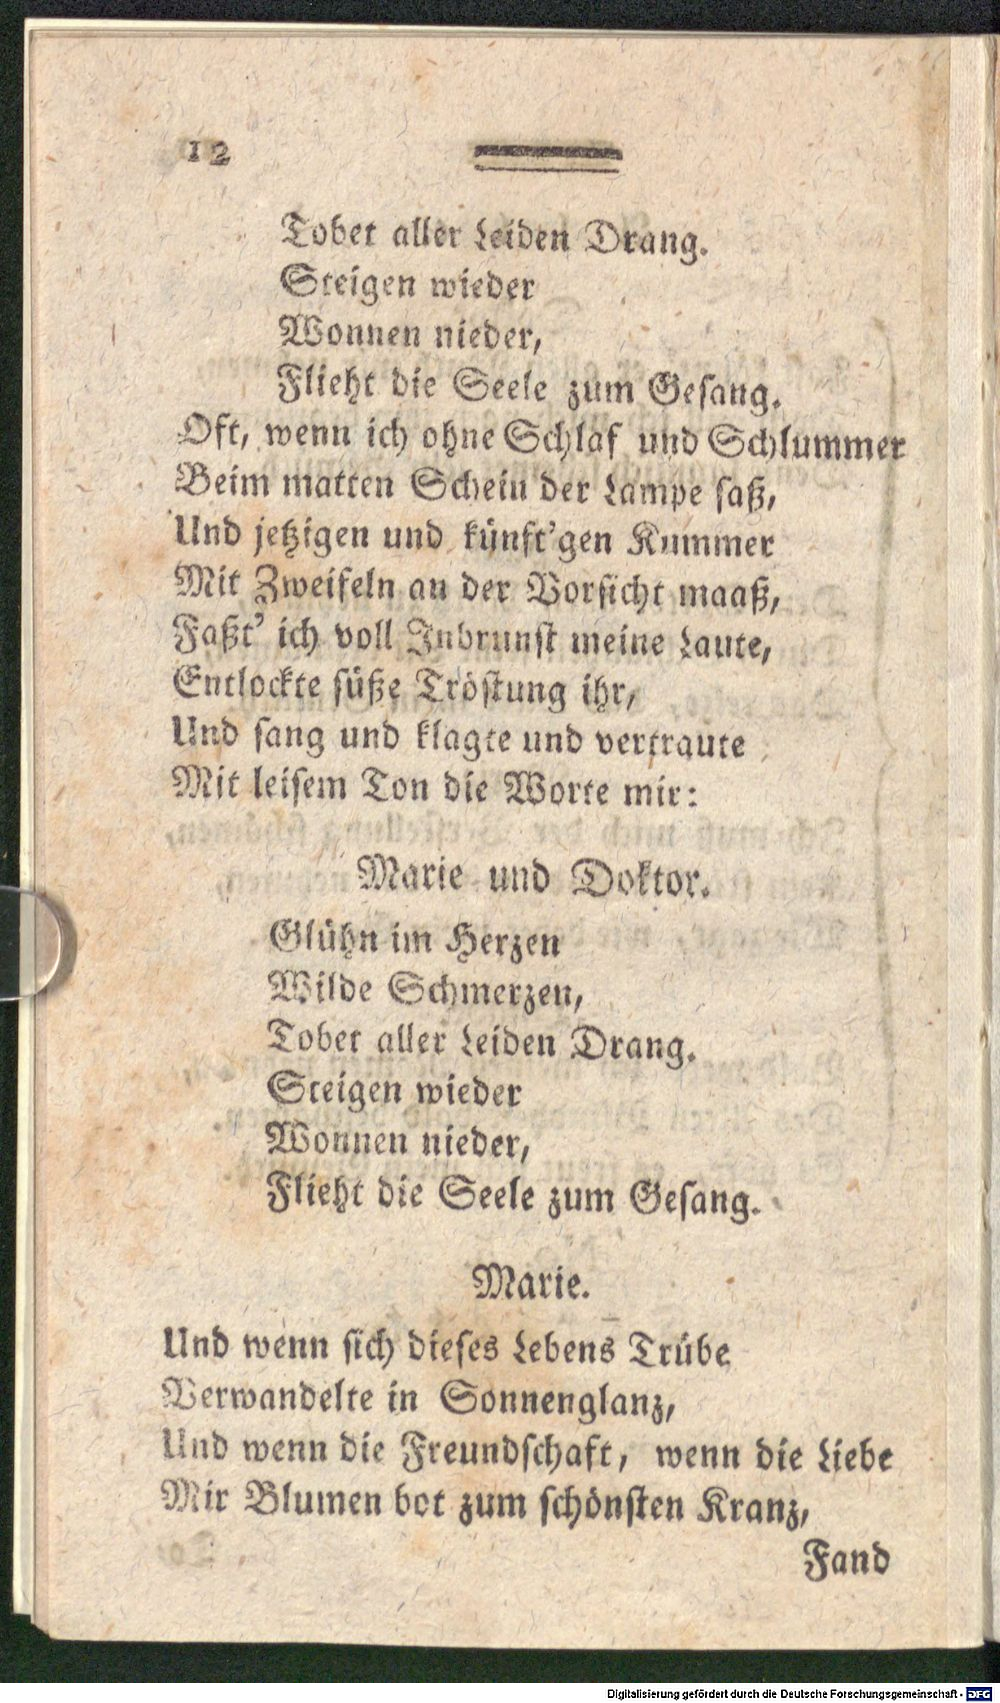 12
Tobet aller Leiden Drang.
Steigen wieder
Wonnen nieder,
Flieht die Seele zum Gesang.
Oft, wenn ich ohne Schlaf und Schlummer
Beim matten Schein der Lampe saß,
Und jetzigen und künft'gen Kummer
Mit Zweifeln an der Vorsicht maaß,
Faßt' ich voll Inbrunst meine Laute,
Entlockte süße Tröstung ihr,
Und sang und klagte und vertraute
Mit leisem Ton die Worte mir:
Marie und Doktor.
Glühn im Herzen
Wilde Schmerzen,
Tobet aller Leiden Drang.
Steigen wieder
Wonnen nieder,
Flieht die Seele zum Gesang.
Marie.
Und wenn sich dieses Lebens Trübe
Verwandelte in Sonnenglanz,
Und wenn die Freundschaft, wenn die Liebe
Mir Blumen bot zum schönsten Kranz,
Fand
Digitalisierung gefördert durch die Deutsche Forschungsgemeinschaft - DFG